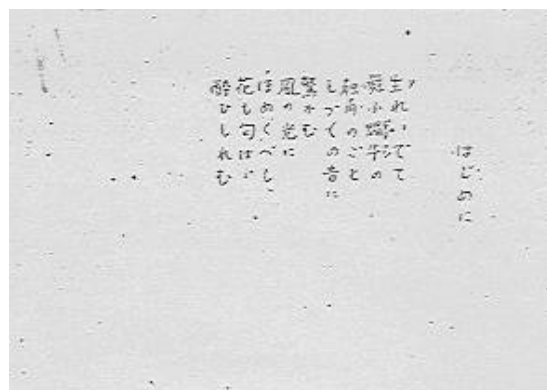 はじめに
生れいで
舞ふ蝸牛の
触角のごと
しづくの音に
驚かむ
風の光に
ほめくべし
花も匂はゞ
酔ひしれむ